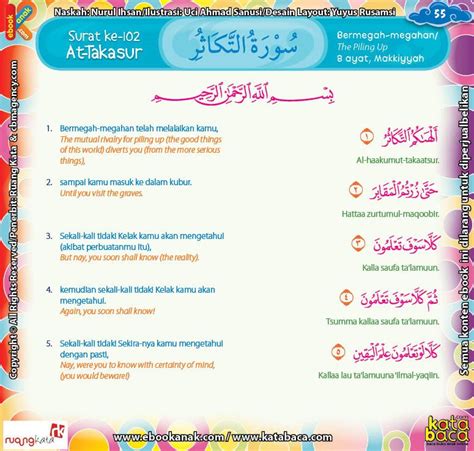 Naskah: Nurul Ihsan/Ilustrasi: Uci Ahmad Sanusi/Desain Layout: Yuyus Rusamsi
55
ebook anak
Surat ke-102
At-Takasur
سُوْرَةُ التَّكَاثُرِ
Bermegah-megahan/
The Piling Up
8 ayat, Makkiyyah
بِسْمِ اللّٰهِ الرَّحْمٰنِ الرَّحِيْمِ
1. Bermegah-megahan telah melalaikan kamu,
The mutual rivalry for piling up (the good things
of this world) diverts you (from the more serious
things),
اَلْهٰىكُمُ التَّكَاثُرُ ١
Al-haakumut-takaatsur.
2. sampai kamu masuk ke dalam kubur.
Until you visit the graves.
حَتّٰى زُرْتُمُ الْمَقَابِرَ ٢
Hattaa zurtumul-maqoobir.
3. Sekali-kali tidak! Kelak kamu akan mengetahui
(akibat perbuatanmu itu),
But nay, you soon shall know (the reality).
كَلَّا سَوْفَ تَعْلَمُوْنَ ٣
Kalla saufa ta'lamuun.
4. kemudian sekali-kali tidak! Kelak kamu akan
mengetahui.
Again, you soon shall know!
ثُمَّ كَلَّا سَوْفَ تَعْلَمُوْنَ ٤
Tsumma kallaa saufa ta'lamuun.
5. Sekali-kali tidak! Sekira-nya kamu mengetahui
dengan pasti,
Nay, were you to know with certainty of mind,
(you would beware!)
كَلَّا لَوْ تَعْلَمُوْنَ عِلْمَ الْيَقِيْنِ ٥
Kallaa lau ta'lamuuna 'ilmal-yaqiin.
Copyright © All Rights Reserved Penerbit: Ruang Kata & cbmagency.com
Semua konten ebook ini dilarang untuk diperjualbelikan
ruangkata
www.ebookanak.com/ www.katabaca.com
kata
baca
.com